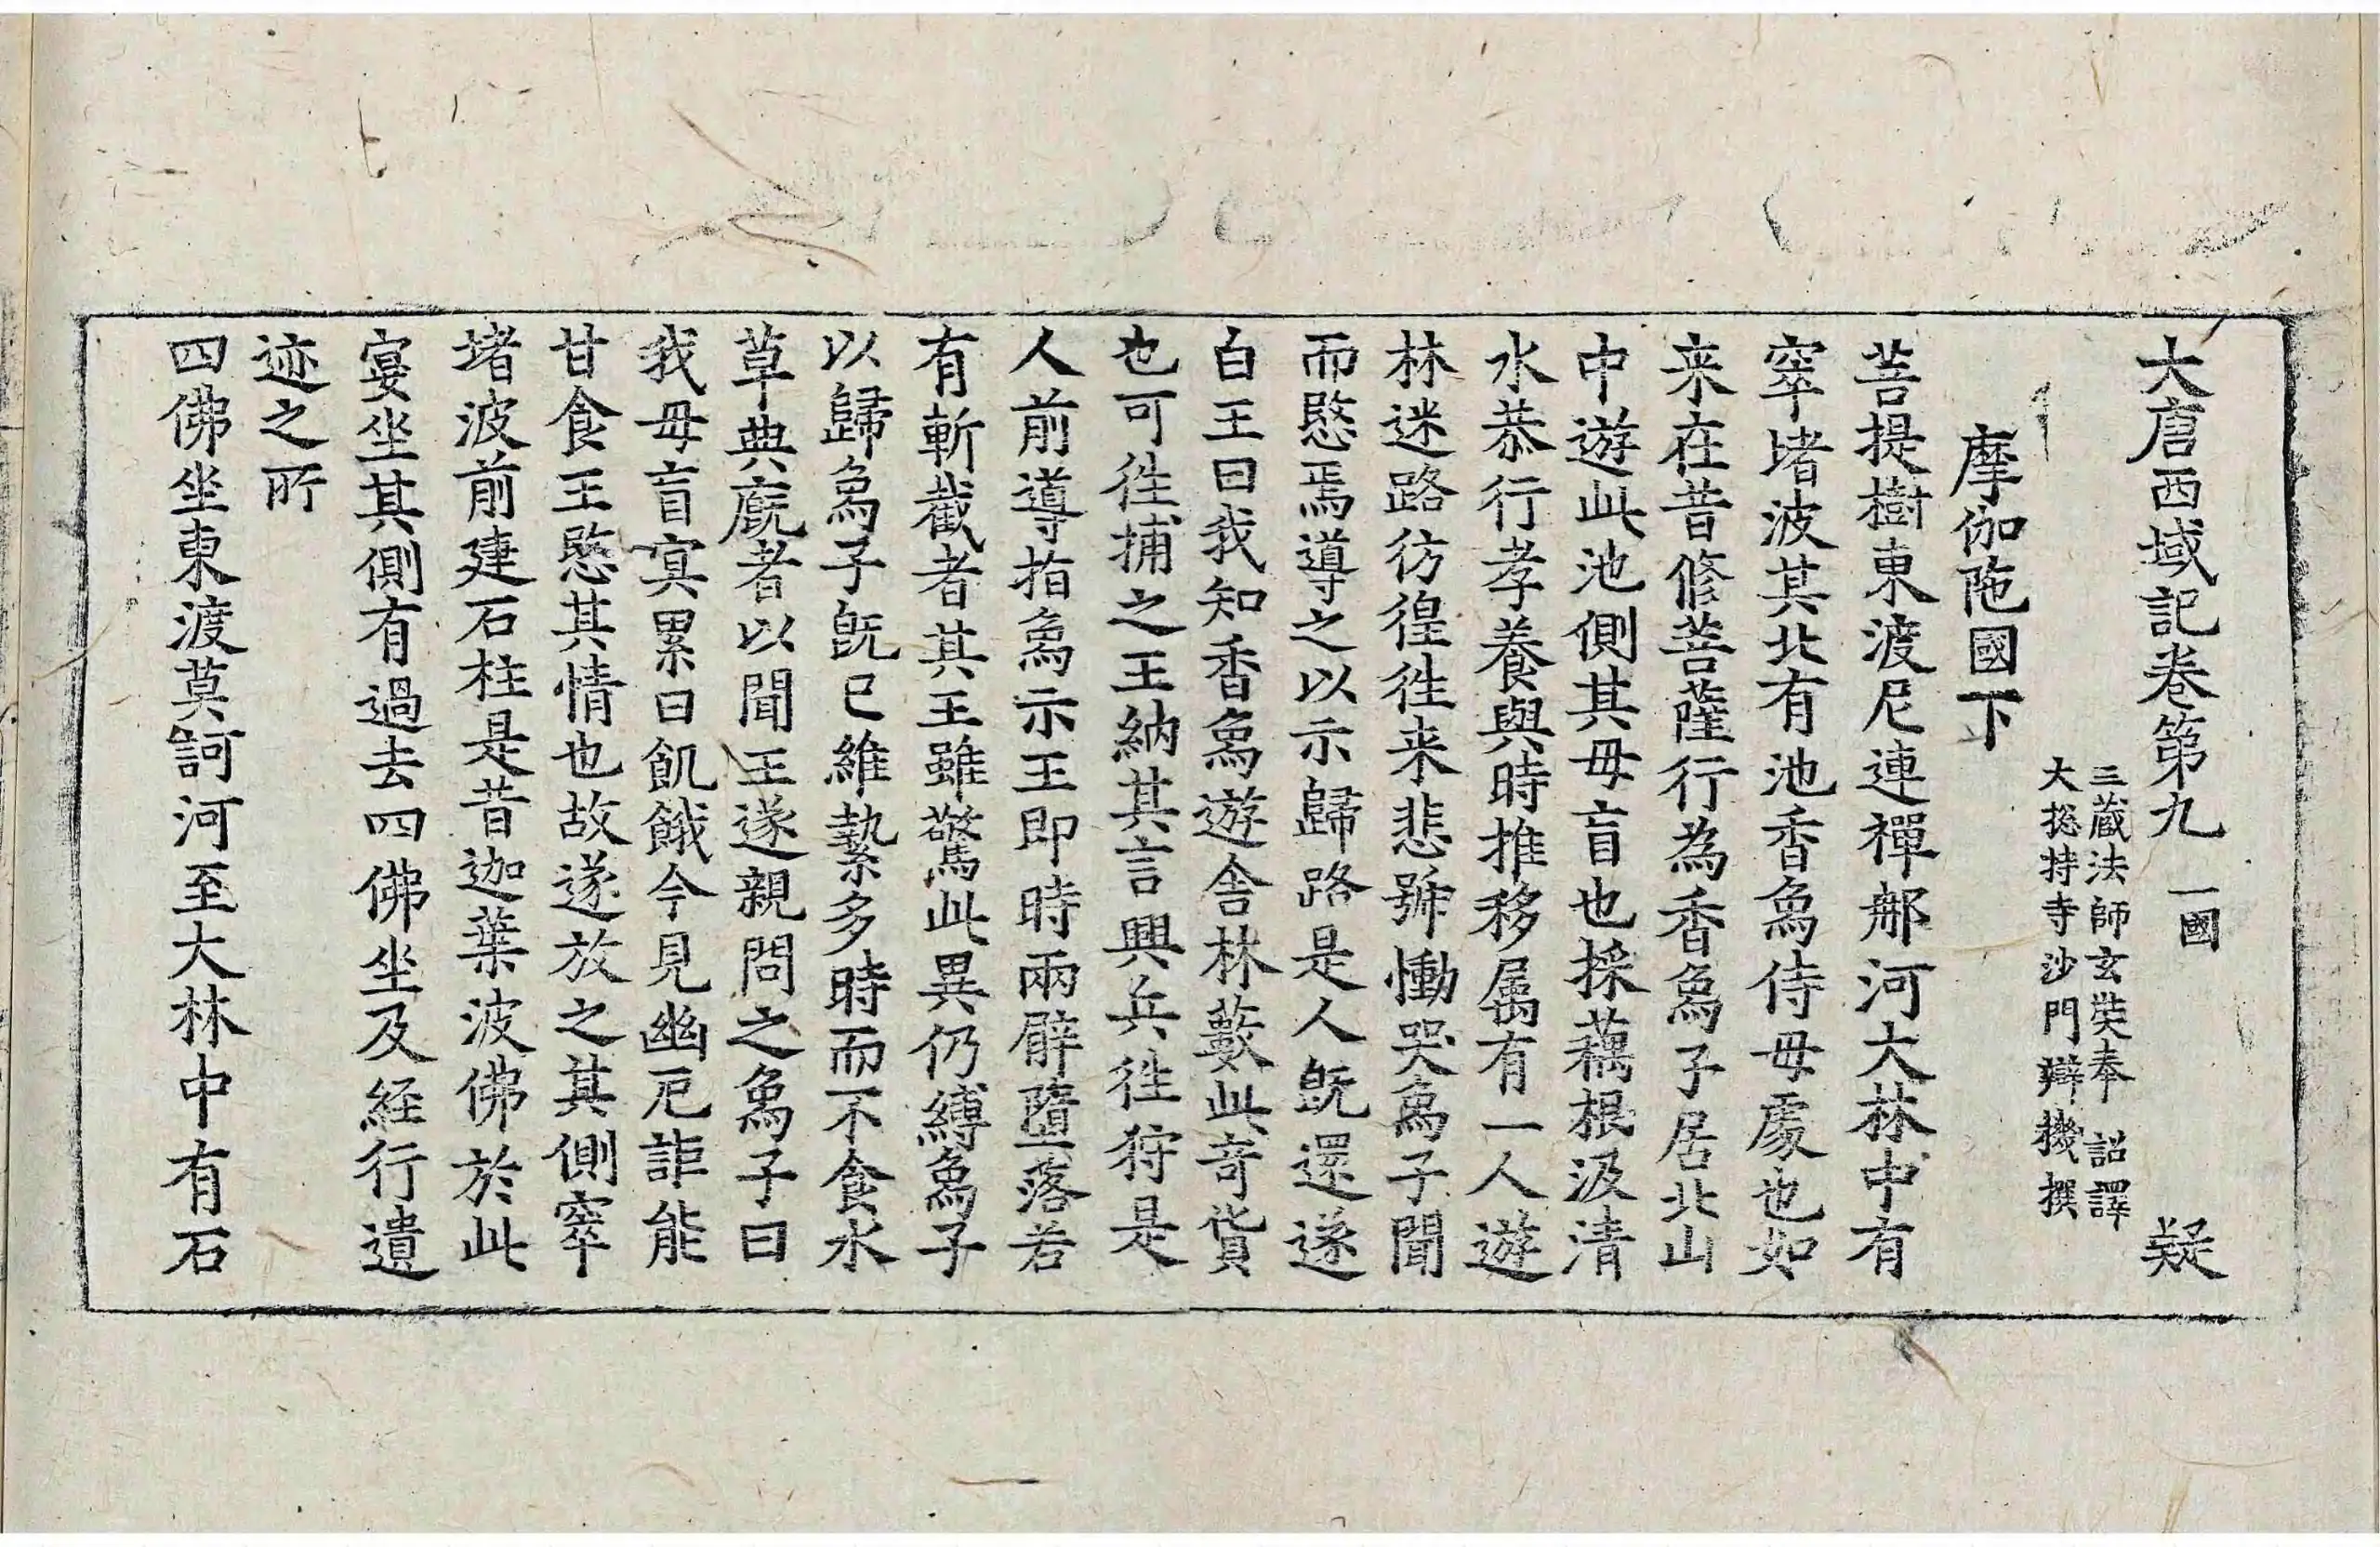 大唐西域記卷第九 一國 疑
三藏法師玄奘奉 詔譯
大捴持寺沙門辯機撰
摩伽陁國下
菩提樹東渡尼連禪郍河大林中有
窣堵波其北有池香象侍母處也如
来在昔修菩薩行為香象子居北山
中遊此池側其母盲也採藕根汲清
水恭行孝養與時推移属有一人遊
林迷路彷徨徃来悲號慟哭象子聞
而愍焉導之以示歸路是人旣還遂
白王曰我知香象遊舎林藪此奇貨
也可徃捕之王納其言興兵徃狩是
人前導指象示王即時兩臂墮落若
有斬截者其王雖驚此異仍縛象子
以歸象子旣已維縶多時而不食水
草典廐者以聞王遂親問之象子曰
我母盲寘累日飢餓今見幽厄詎能
甘食王愍其情也故遂放之其側窣
堵波前建石柱是昔迦葉波佛於此
宴坐其側有過去四佛坐及経行遺
迹之所
四佛坐東渡莫訶河至大林中有石